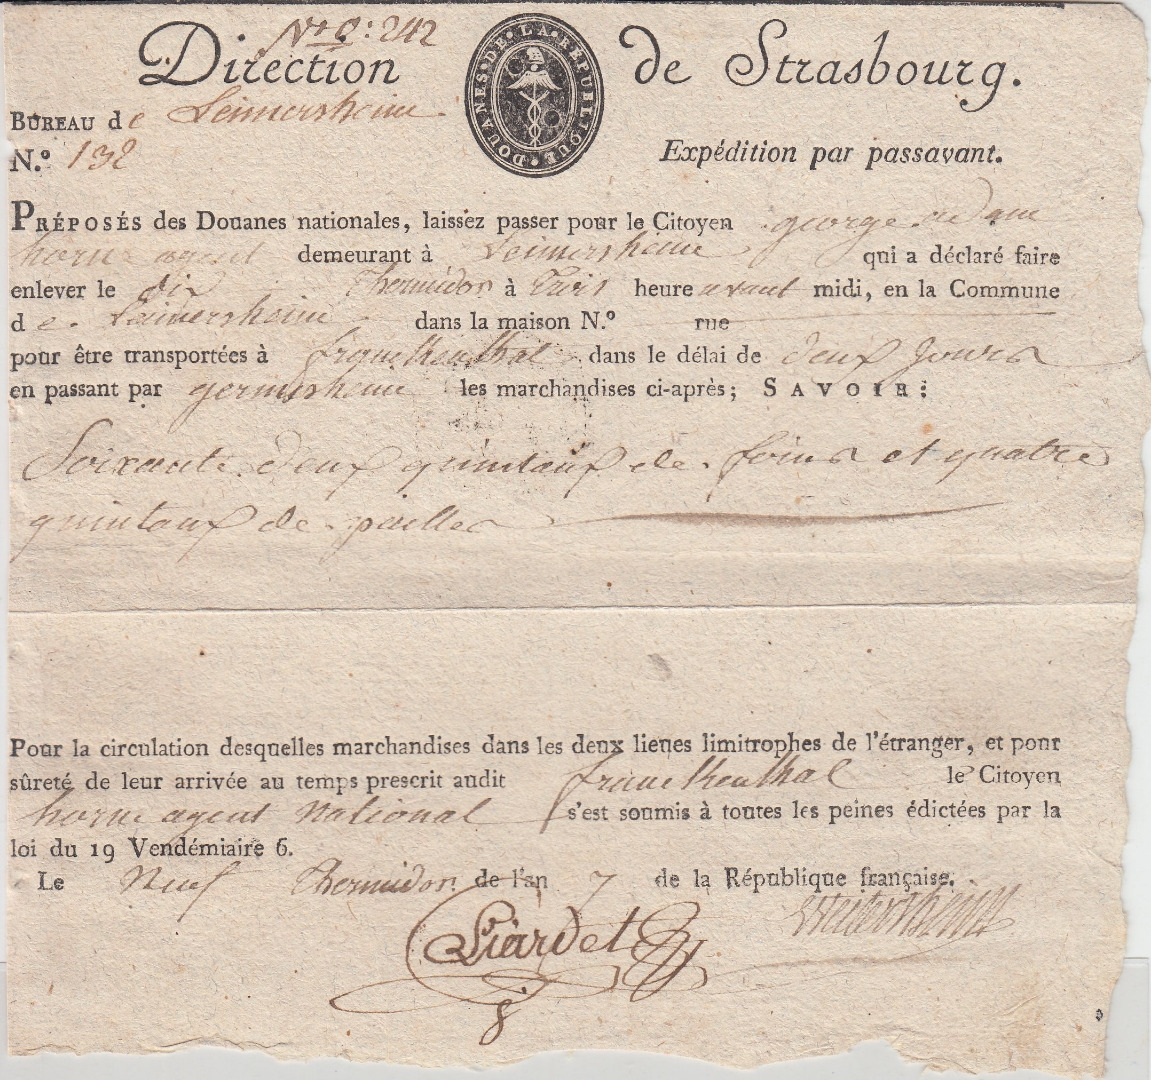 N.º 242
Direction de Strasbourg.
DOUANES · DE · LA · RÉPUBLIQUE
BUREAU de Leimersheim
N.º 132
Expédition par passavant.
PRÉPOSÉS des Douanes nationales, laissez passer pour le Citoyen george adam
horne agent demeurant à Leimersheim qui a déclaré faire
enlever le dix Thermidor à trois heure avant midi, en la Commune
de Leimersheim dans la maison N.º rue
pour être transportées à franckenthal dans le délai de deux jours
en passant par germersheim les marchandises ci-après; SAVOIR:
Soixante deux quintaux de foins et quatre
quintaux de pailles
Pour la circulation desquelles marchandises dans les deux lieues limitrophes de l'étranger, et pour
sûreté de leur arrivée au temps prescrit audit franckenthal le Citoyen
horne agent national s'est soumis à toutes les peines édictées par la
loi du 19 Vendémiaire 6.
Le Neuf Thermidor de l'an 7 de la République française.
Liardet